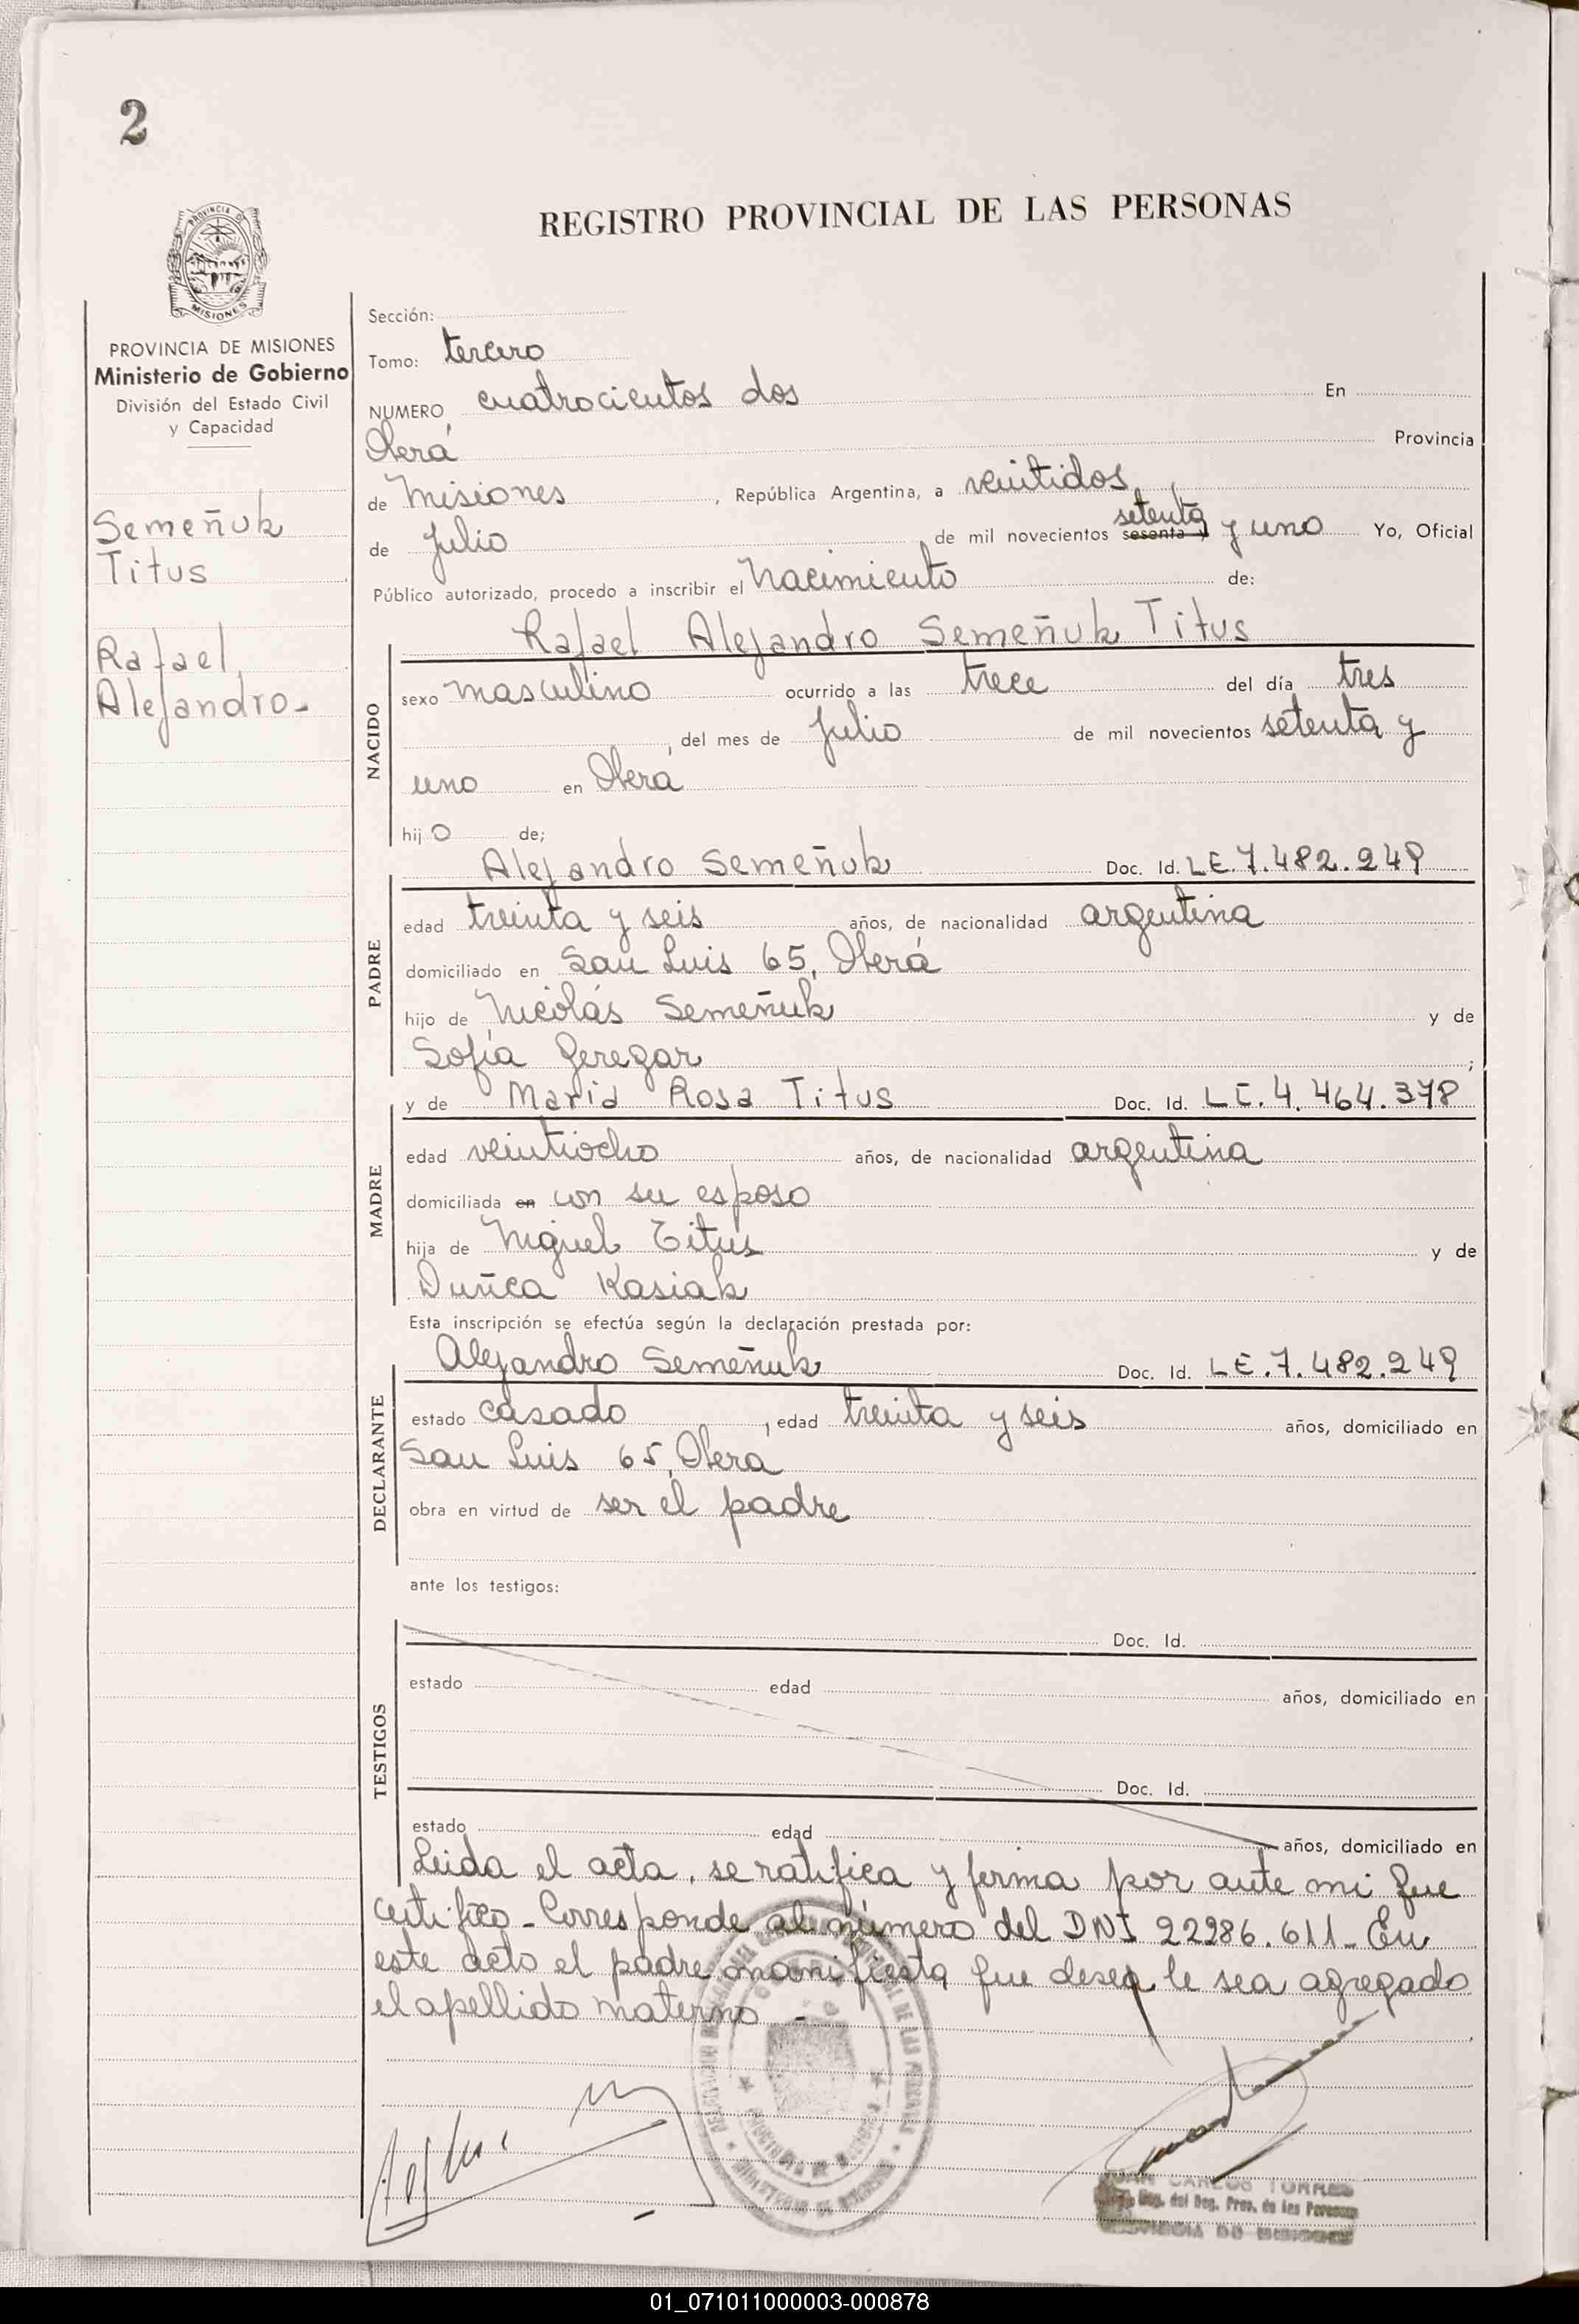 2
REGISTRO PROVINCIAL DE LAS PERSONAS
PROVINCIA DE
MISIONES
PROVINCIA DE MISIONES
Ministerio de Gobierno
División del Estado Civil
y Capacidad
Semeñuk
Titus
Rafael
Alejandro-
Sección:
Tomo: tercero
NUMERO cuatrocientos dos En
Oberá Provincia
de Misiones , República Argentina, a veintidos
de Julio de mil novecientos sesenta y setenta y uno Yo, Oficial
Público autorizado, procedo a inscribir el Nacimiento de:
Rafael Alejandro Semeñuk Titus
NACIDO
sexo masculino ocurrido a las trece del día tres
, del mes de Julio de mil novecientos setenta y
uno en Oberá
hijo de;
Alejandro Semeñuk Doc. Id. LE.7.482.249
PADRE
edad treinta y seis años, de nacionalidad argentina
domiciliado en San Luis 65, Oberá
hijo de Nicolás Semeñuk y de
Sofía Geregar ;
y de María Rosa Titus Doc. Id. LC.4.464.378
MADRE
edad veintiocho años, de nacionalidad argentina
domiciliada en con su esposo
hija de Miguel Titus y de
Duñca Kasiak
Esta inscripción se efectúa según la declaración prestada por:
Alejandro Semeñuk Doc. Id. LE.7.482.249
DECLARANTE
estado casado , edad treinta y seis años, domiciliado en
San Luis 65, Oberá
obra en virtud de ser el padre
ante los testigos:
TESTIGOS
Doc. Id.
estado edad años, domiciliado en
Doc. Id.
estado edad años, domiciliado en
Leida el acta, se ratifica y firma por ante mi que
certifico - Corresponde al número del DNI 22286.611- En
este acto el padre manifiesta que desea le sea agregado
el apellido materno -
CARLOS TORRES
del Reg. Prov. de las Personas
01_071011000003-000878